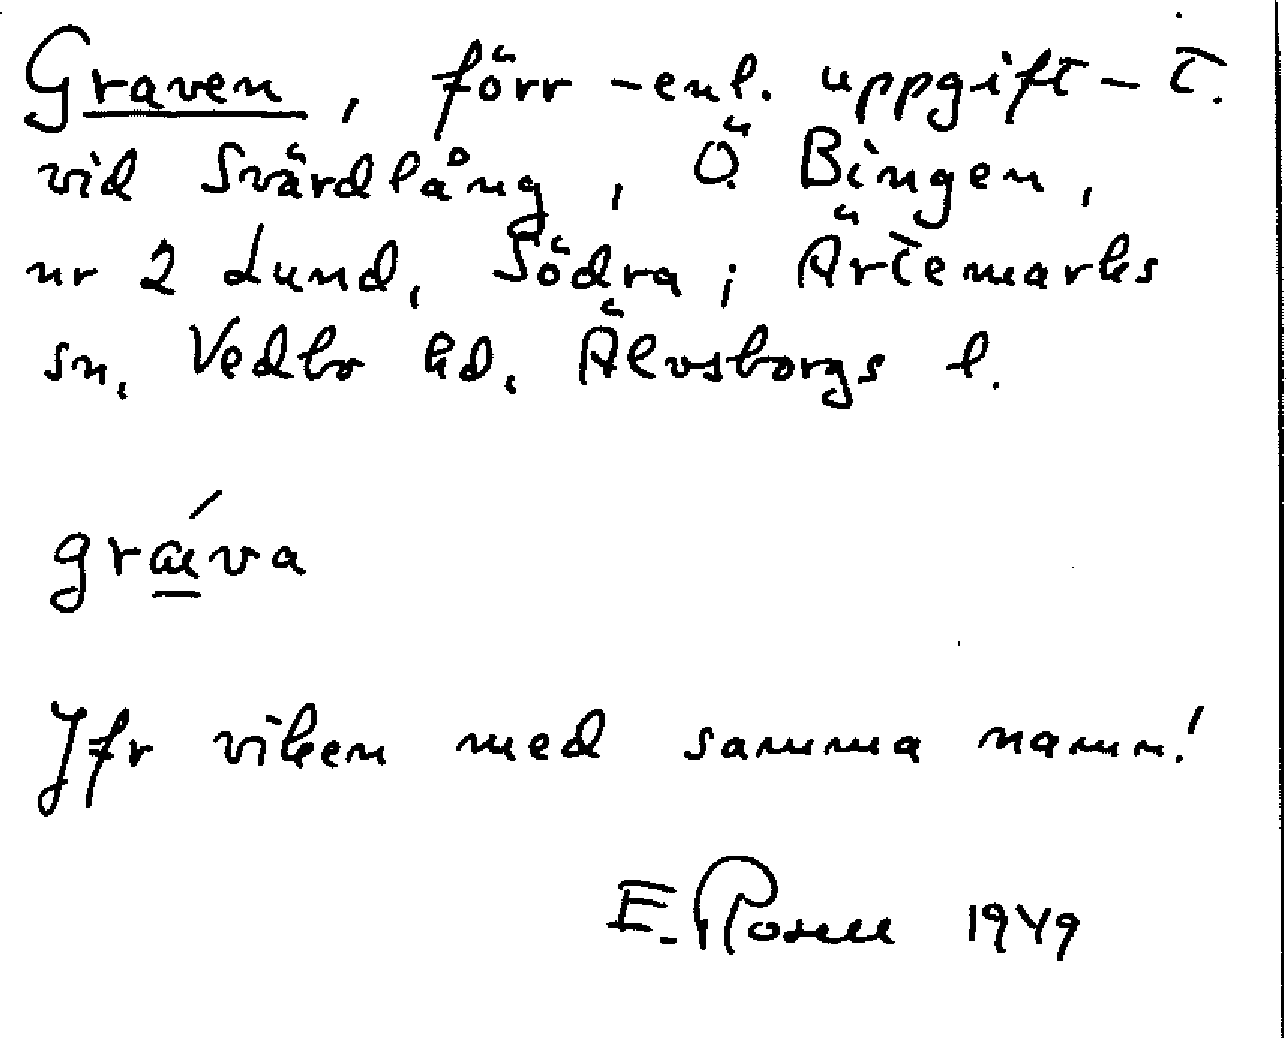 Graven, förr - enl. uppgift - t.
vid Svärdlång, Ö. Bingen,
nr 2 Lund, Södra, i Ärtemarks
sn, Vedbo hd, Älvsborgs l.
grǽva
Jfr viken med samma namn!
E. Rosell 1949